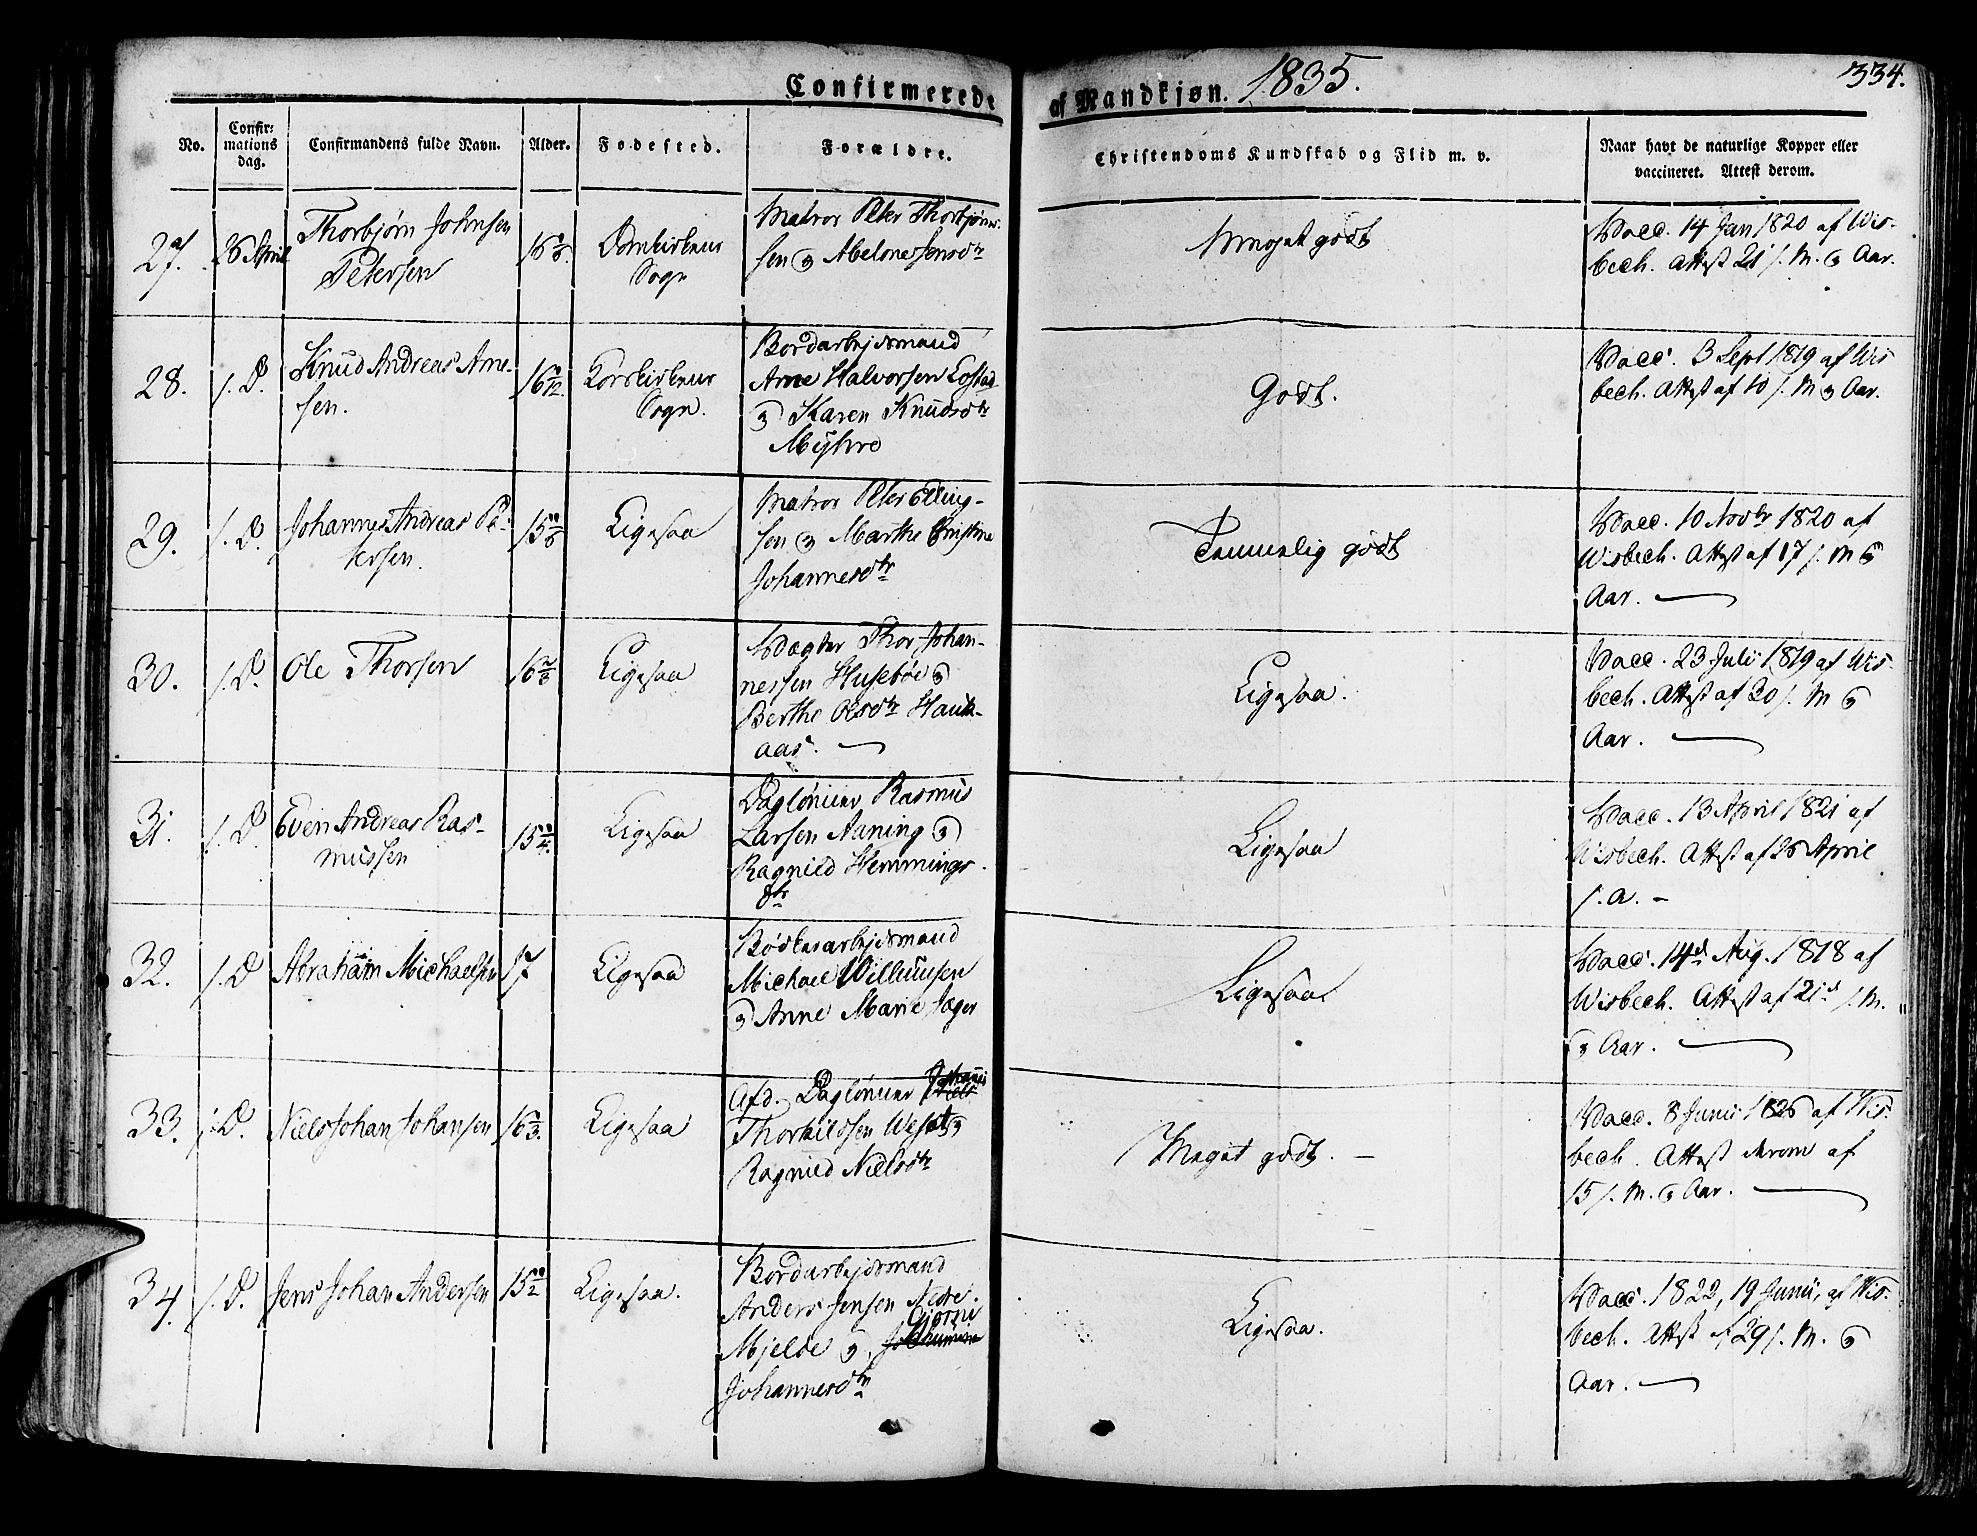 Confirmerede af Mandkjøn. 1835. 334.
No. Confir-mations dag. Confirmandens fulde Navn. Alder. Fødested. Forældre. Christendoms Kundskab og Flid m. v. Naar havt de naturlige Kopper eller vaccineret. Attest derom.
27. 26 April Thorbjørn Johnsen
Petersen
Domkirkens
Sogn
Matros Peter Thorbjørn-
sen
Meget godt
Vacc. 14 Jan 1820 af Wis-
bech. Attest 21 s. M. & Aar.
28. s. D. Knud Andreas Arne-
sen.
Korskirkens
Sogn.
Bordarbejdsmand
Arne Halvorsen
& Karen Knudsdtr
Myhre
Godt.
Vacc. 3 Sept 1819 af Wis
bech. Attest af 10 s. M & Aar.
29. s. D. Johannes Andreas Pe-
tersen.
Ligesaa
Matros Peter Elling-
sen & Marthe Christine
Johannesdtr
Temmelig godt
Vacc. 10 Novbr 1820 af
Wisbech. Attest af 17 s. M &
Aar.
30. s. D. Ole Thorsen
Ligesaa
Vægter Thor Johan-
nessen Husebøe &
Berthe Olsdtr Hauk-
aas.
Ligesaa.
Vacc. 23 Juli 1819 af Wis-
bech. Attest af 30 s. M &
Aar.
31. s. D. Even Andreas Ras-
mussen
15
Ligesaa
Daglønner Rasmus
Larsen Aaning &
Ragnild Hemmings-
dtr
Ligesaa
Vacc. 13 April 1821 af
Wisbech. Attest af 26 April
s. A. -
32. s. D Abraham Michaelsen 17
Ligesaa
Bødkerarbejdsmand
Michael Willumsen
& Anne Marie Jæger
Ligesaa.
Vacc. 14d Aug. 1818 af
Wisbech. Attest af 21d s. M.
& Aar.
33. s. D. Niels Johan Johansen
Ligesaa
Afd. Daglønner Johannes
Thorkildsen &
Ragnild Nielsdtr
Meget godt. -
Vacc. 8 Junii af Wis-
bech. Attest derom af
15 s. M. & Aar.
34. s. D. Jens Johan Andersen
Ligesaa.
Bordarbejdsmand
Anders Jensen Nedre
Mjelde & Gjorni
Johannesdtr
Ligesaa.
Vacc. 1822, 19 Junii, af Wis-
bech. Attest af 29 s. M. &
Aar.